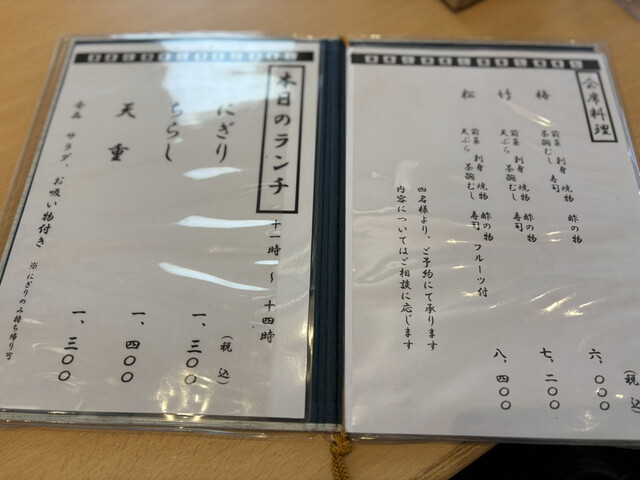 会席料理
(税込)
梅
前菜 刺身 焼物 酢の物
茶碗むし 寿司
六、〇〇〇
竹
前菜 刺身 焼物 酢の物
天ぷら 茶碗むし 寿司
七、二〇〇
松
前菜 刺身 焼物 酢の物 フルーツ付
天ぷら 茶碗むし 寿司
八、四〇〇
四名様より、ご予約にて承ります
内容についてはご相談に応じます
本日のランチ
十一時 〜 十四時
(税込)
にぎり
一、三〇〇
ちらし
一、四〇〇
天重
一、三〇〇
全品 サラダ、お吸い物付き ※にぎりのみ持ち帰り可